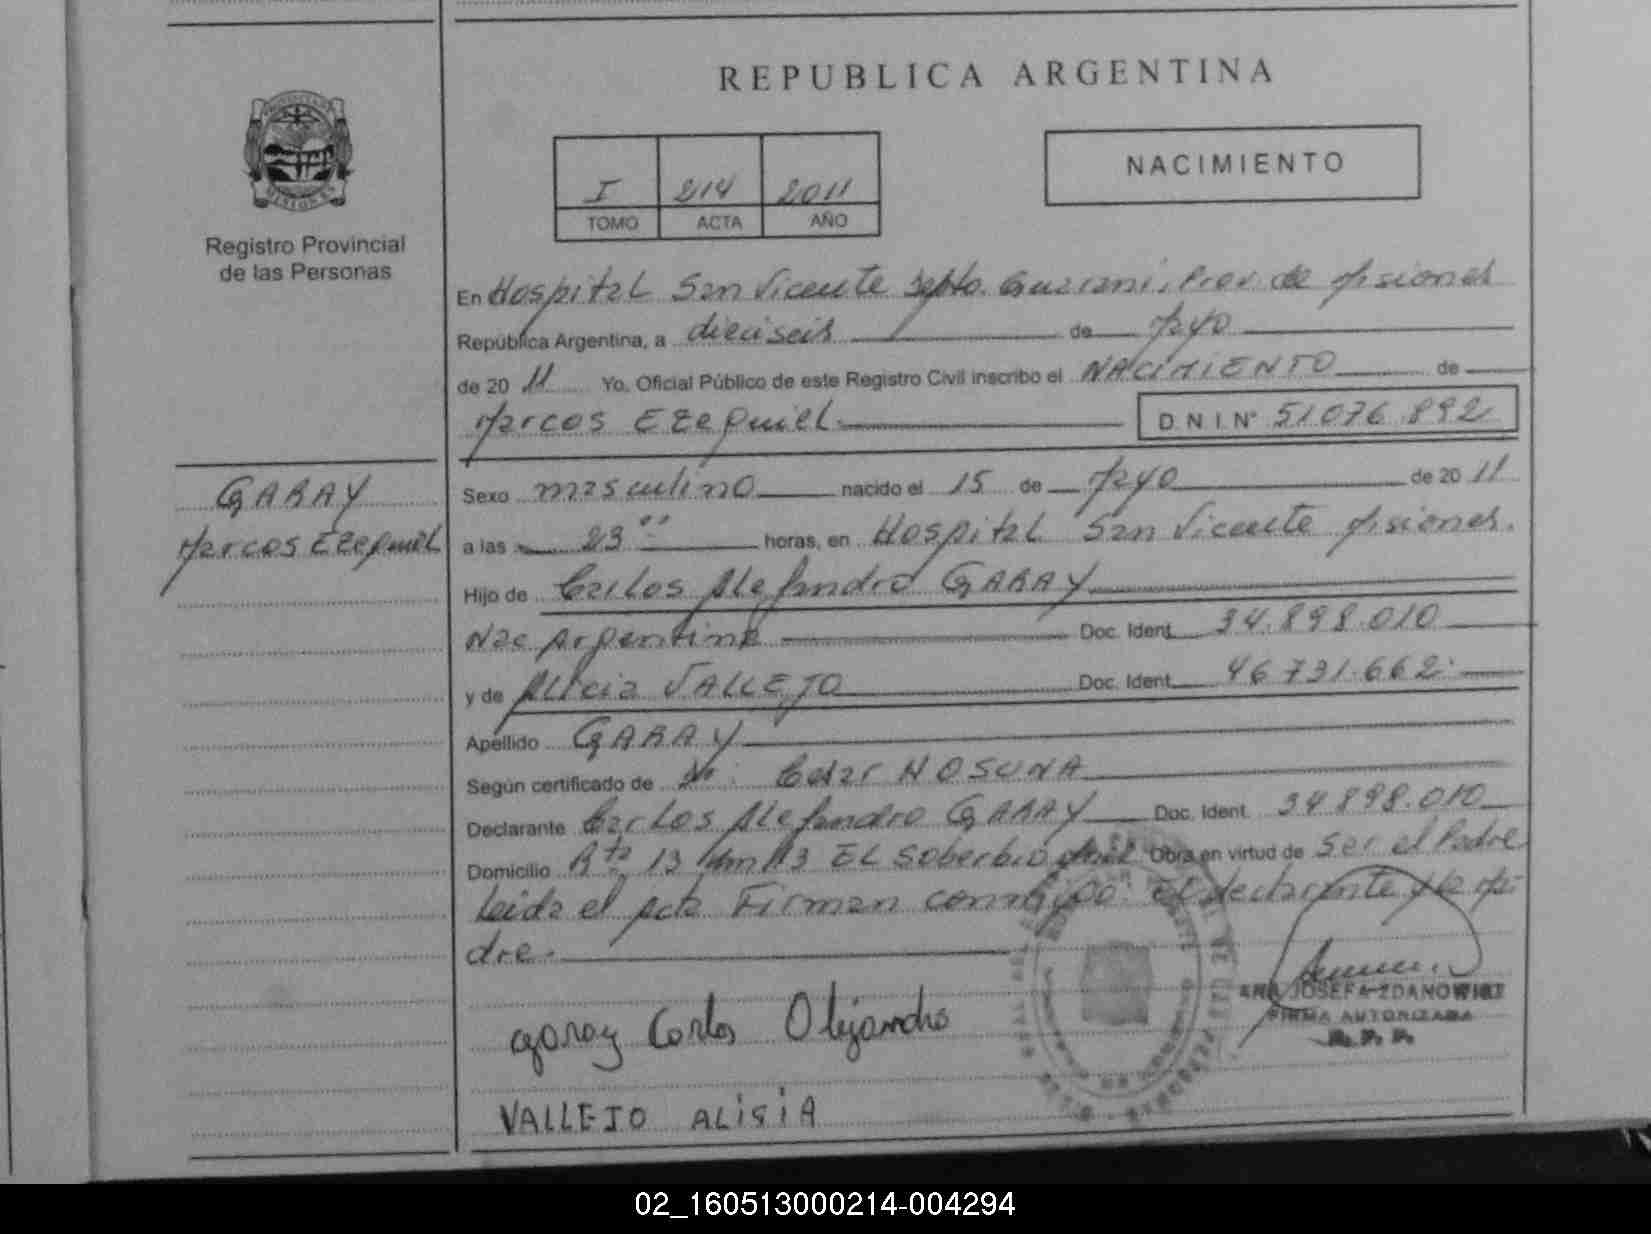 REPUBLICA ARGENTINA
NACIMIENTO
I 214 2011
TOMO ACTA AÑO
Registro Provincial
de las Personas
En Hospital San Vicente Depto. Guarani, Prov. de Misiones
República Argentina, a dieciseis de Mayo
de 20 11 Yo, Oficial Público de este Registro Civil inscribo el NACIMIENTO de
Marcos Ezequiel D.N.I.N° 51076.892
GARAY
Marcos Ezequiel
Sexo masculino nacido el 15 de Mayo de 20 11
a las 23 horas, en Hospital San Vicente Misiones.
Hijo de Carlos Alejandro GARAY
Nac Argentina Doc. Ident. 34.898.010
y de Alicia VALLEJO Doc. Ident. 46731.662
Apellido GARAY
Según certificado de Dr. Cesar NOSUNA
Declarante Carlos Alejandro GARAY Doc. Ident. 34898.010
Domicilio Rta 13 Km 13 EL Soberbio Obra en virtud de Ser el Padre
Leida el acta Firman conmigo: El declarante y la Ma
dre.
Garay Carlos Alejandro
VALLEJO ALISIA
ANA JOSEFA ZDANOWICZ
FIRMA AUTORIZADA
R. P. P.
02_160513000214-004294